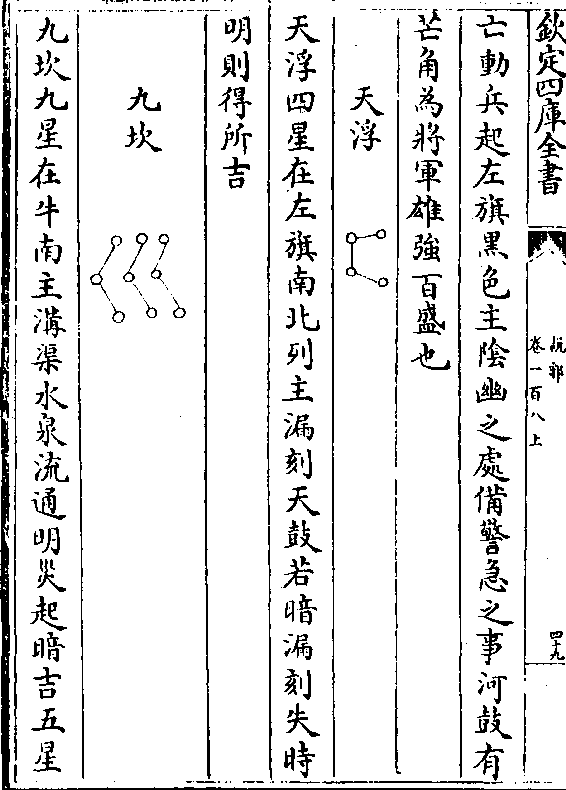 欽定四庫全書
說郛
卷一百八上
四十九
亡動兵起左旗黑色主陰幽之處備警急之事河鼓有
芒角為將軍雄強百盛也
天浮
天浮四星在左旗南北列主漏刻天鼓若暗漏刻失時
明則得所吉
九坎
九坎九星在牛南主溝渠水泉流通明災起暗吉五星